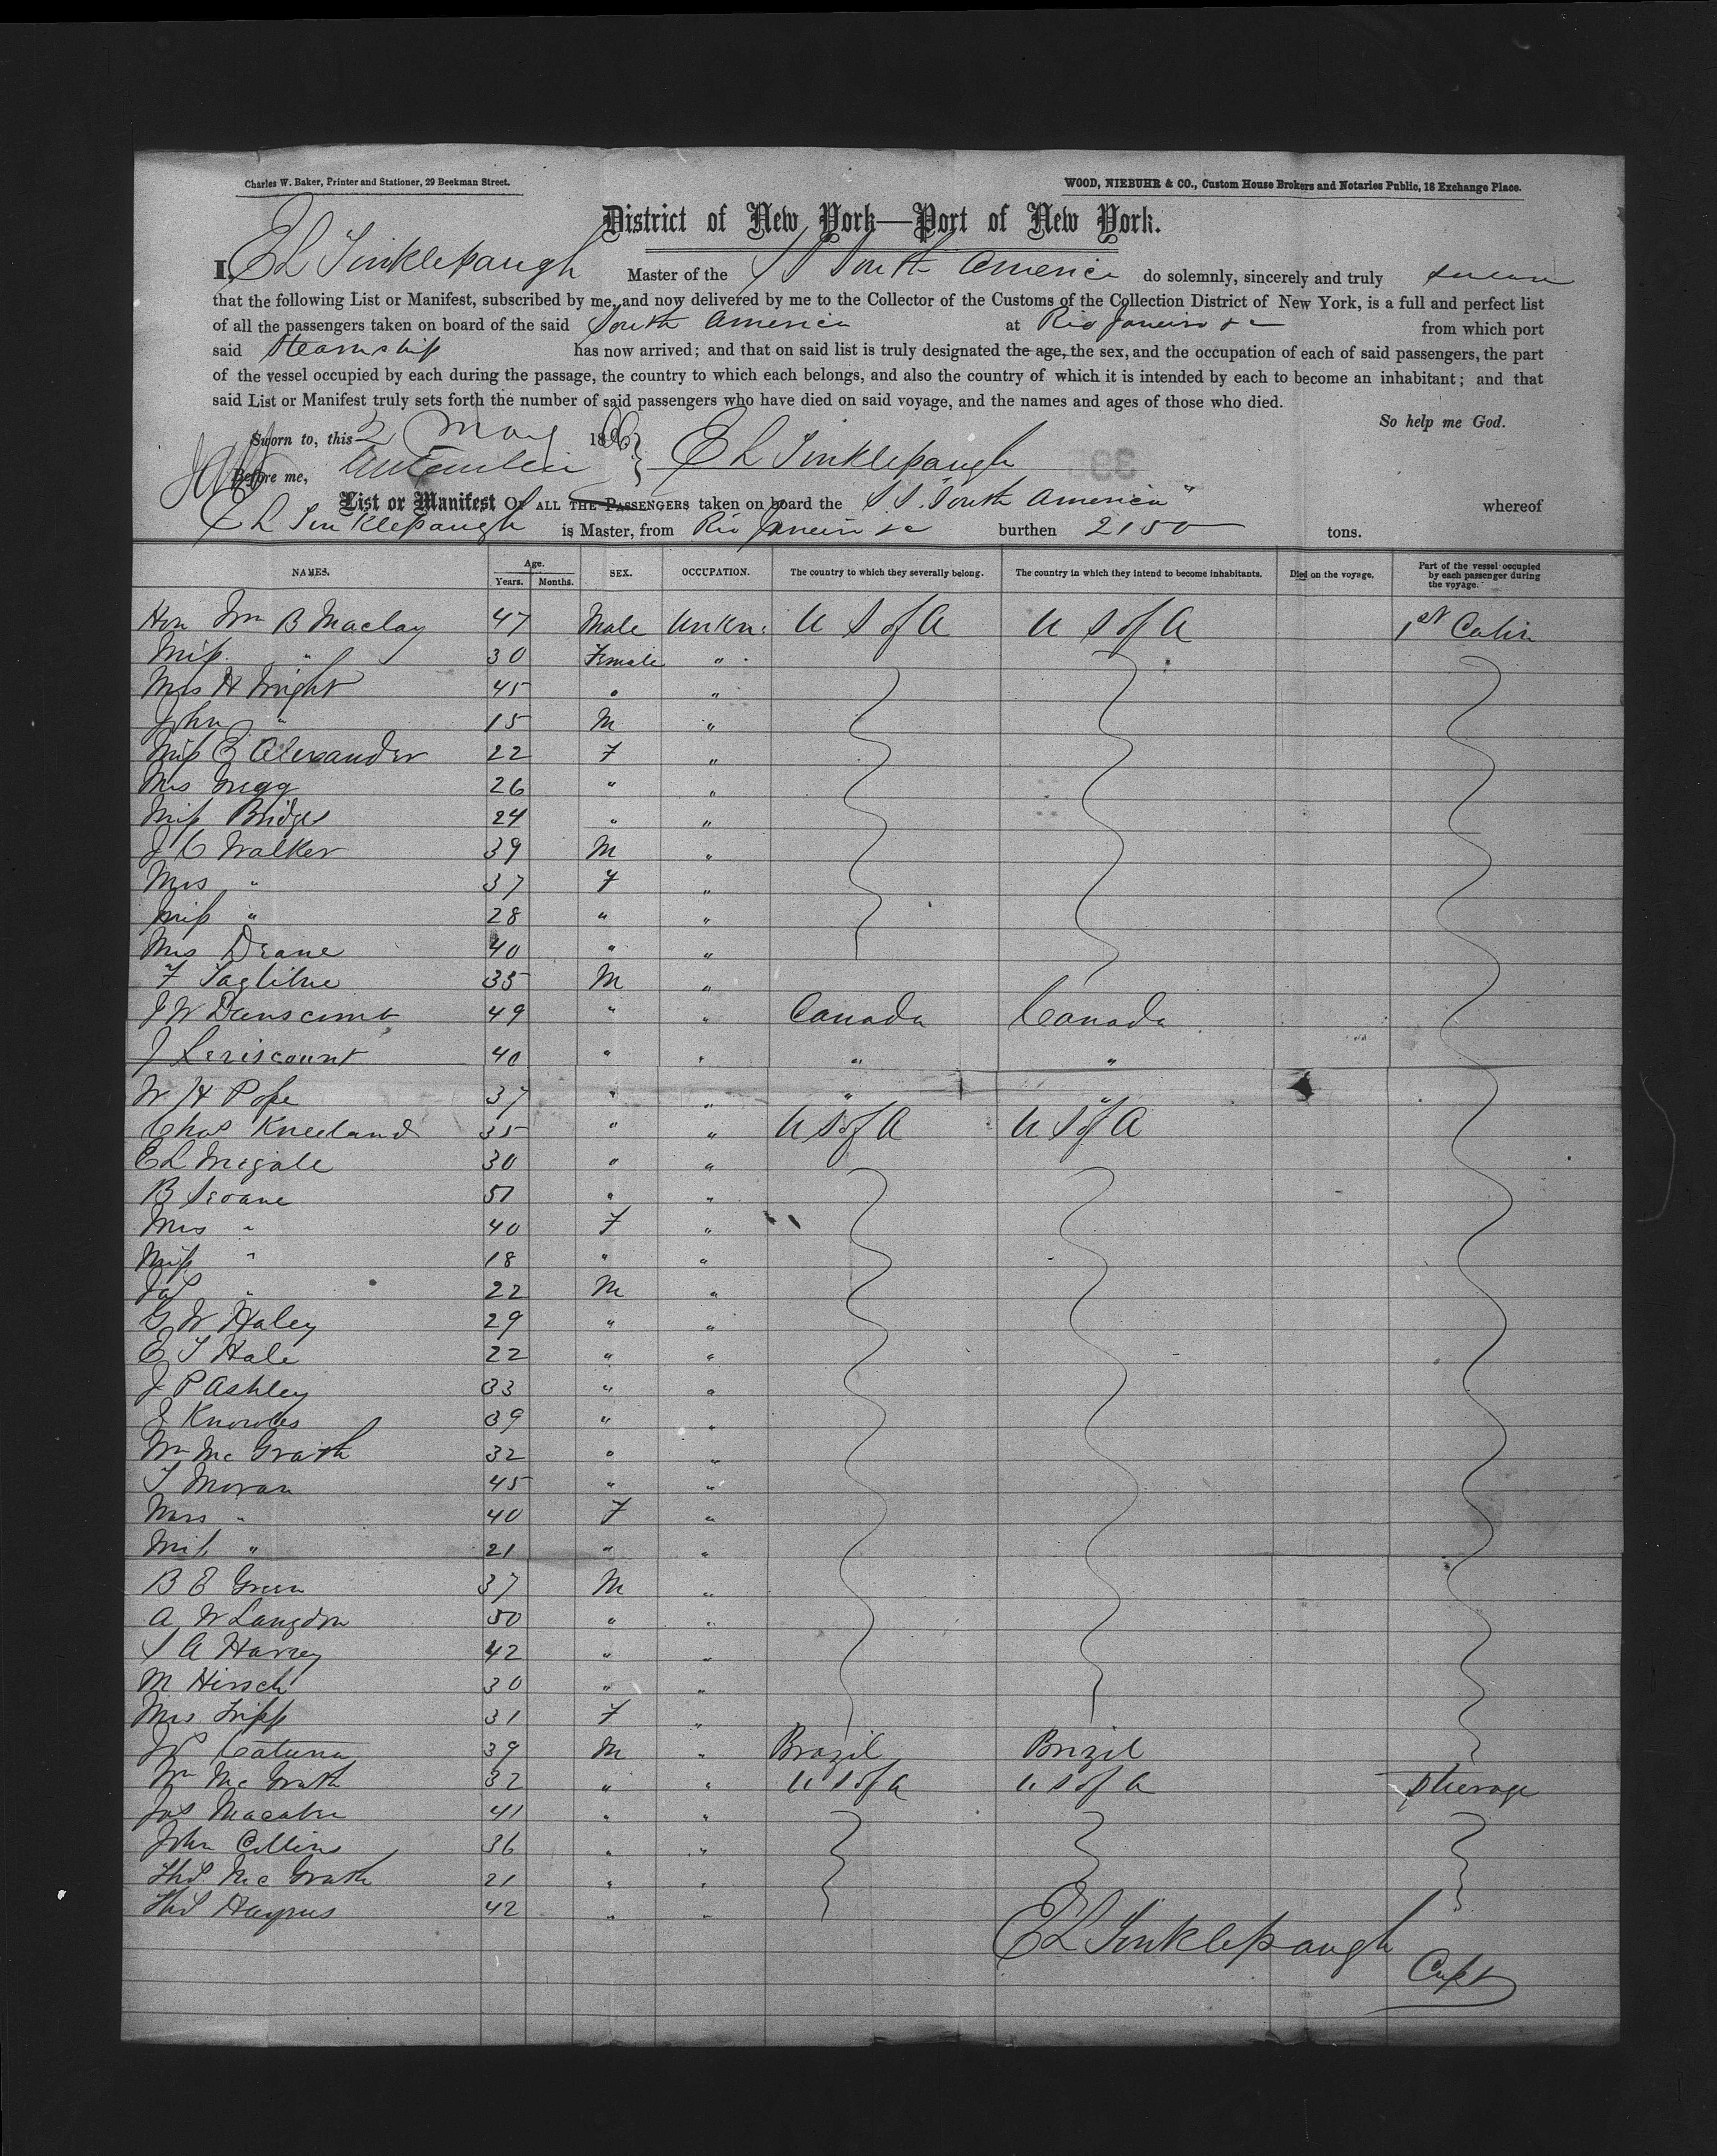 Charles W. Baker, Printer and Stationer, 29 Beekman Street.
WOOD, NIEBUHR & CO., Custom House Brokers and Notaries Public, 18 Exchange Place.
District of New York—Port of New York.
I, E L Tinklepaugh Master of the S S South America do solemnly, sincerely and truly swear
that the following List or Manifest, subscribed by me, and now delivered by me to the Collector of the Customs of the Collection District of New York, is a full and perfect list
of all the passengers taken on board of the said South America at Rio Janeiro &c from which port
said Steamship has now arrived; and that on said list is truly designated the age, the sex, and the occupation of each of said passengers, the part
of the vessel occupied by each during the passage, the country to which each belongs, and also the country of which it is intended by each to become an inhabitant; and that
said List or Manifest truly sets forth the number of said passengers who have died on said voyage, and the names and ages of those who died.
So help me God.
Sworn to, this 2 May 1866 E L Tinklepaugh
Before me,
List or Manifest OF ALL THE PASSENGERS taken on board the S.S. "South America" whereof
E L Tinklepaugh is Master, from Rio Janeiro &c burthen 2150 tons.
NAMES. Age. Years. Months. SEX. OCCUPATION. The country to which they severally belong. The country in which they intend to become inhabitants. Died on the voyage. Part of the vessel occupied by each passenger during the voyage.
Hon Wm B Maclay 47 Male Unkn: U S of A U S of A 1st Cabin
Miss " 30 Female "
Mrs H Wright 45 " "
John " 15 M "
Miss E Alexander 22 F "
Mrs Gregg 26 " "
Miss Bridges 24 " "
J C Walker 39 M "
Mrs " 37 F "
Miss " 28 " "
Mrs Deane 40 " "
F 35 M "
J W Dunscomb 49 " " Canada Canada
J Leriscount 40 " " " "
W H Pope 37 " " " "
Chas Kneeland 35 " " U S of A U S of A
E L 30 " "
B Seoane 51 " "
Mrs " 40 F "
Miss " 18 " "
Jas " 22 M "
G W Haley 29 " "
E T Hale 22 " "
J P Ashley 33 " "
E Knowles 39 " "
Wm McGrath 32 " "
T Moran 45 " "
Mrs " 40 F "
Miss " 21 " "
B E Green 37 M "
A W Langdon 50 " "
S A Harvey 42 " "
M Hirsch 30 " "
Mrs Tripp 31 F "
39 M " Brazil Brizil
Wm McGrath 32 " " U S of A U S of A Steerage
Jas 41 " "
John Collins 36 " "
Thos McGrath 21 " "
Thos Haynes 42 " "
E L Tinklepaugh
Capt